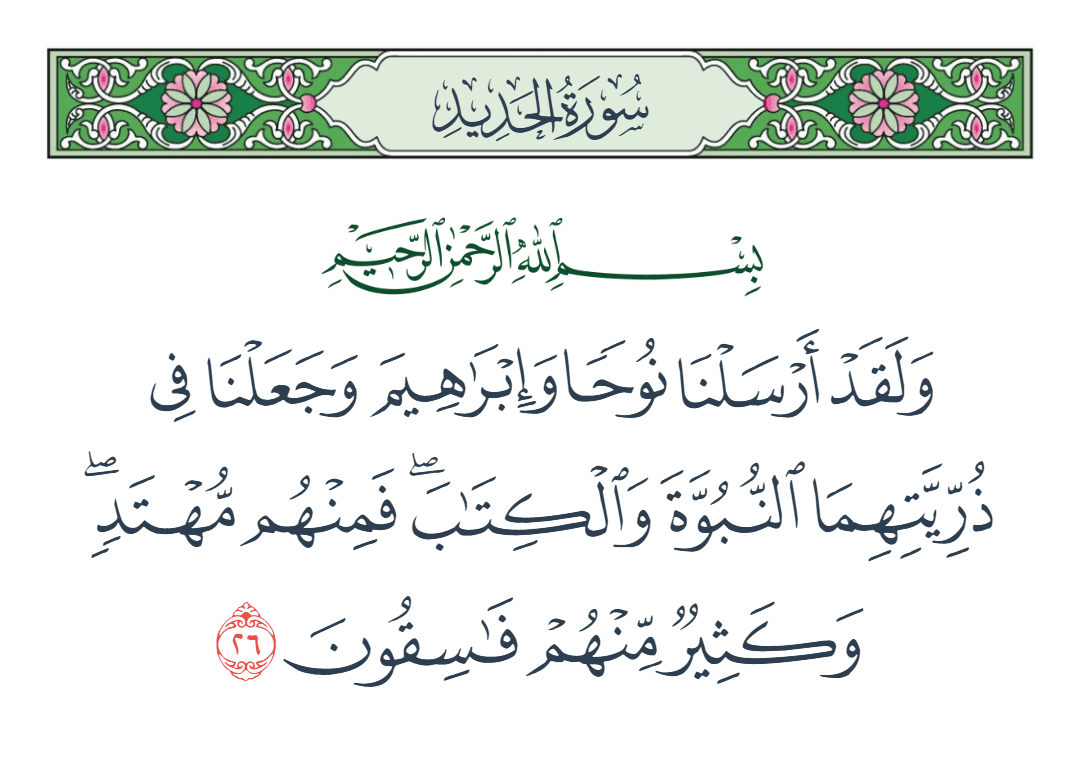 سُورَةُ الحَدِيدِ
بِسْمِ ٱللَّهِ ٱلرَّحْمَٰنِ ٱلرَّحِيمِ
وَلَقَدْ أَرْسَلْنَا نُوحًا وَإِبْرَٰهِيمَ وَجَعَلْنَا فِى
ذُرِّيَّتِهِمَا ٱلنُّبُوَّةَ وَٱلْكِتَٰبَ ۖ فَمِنْهُم مُّهْتَدٍ ۖ
وَكَثِيرٌ مِّنْهُمْ فَٰسِقُونَ ٢٦